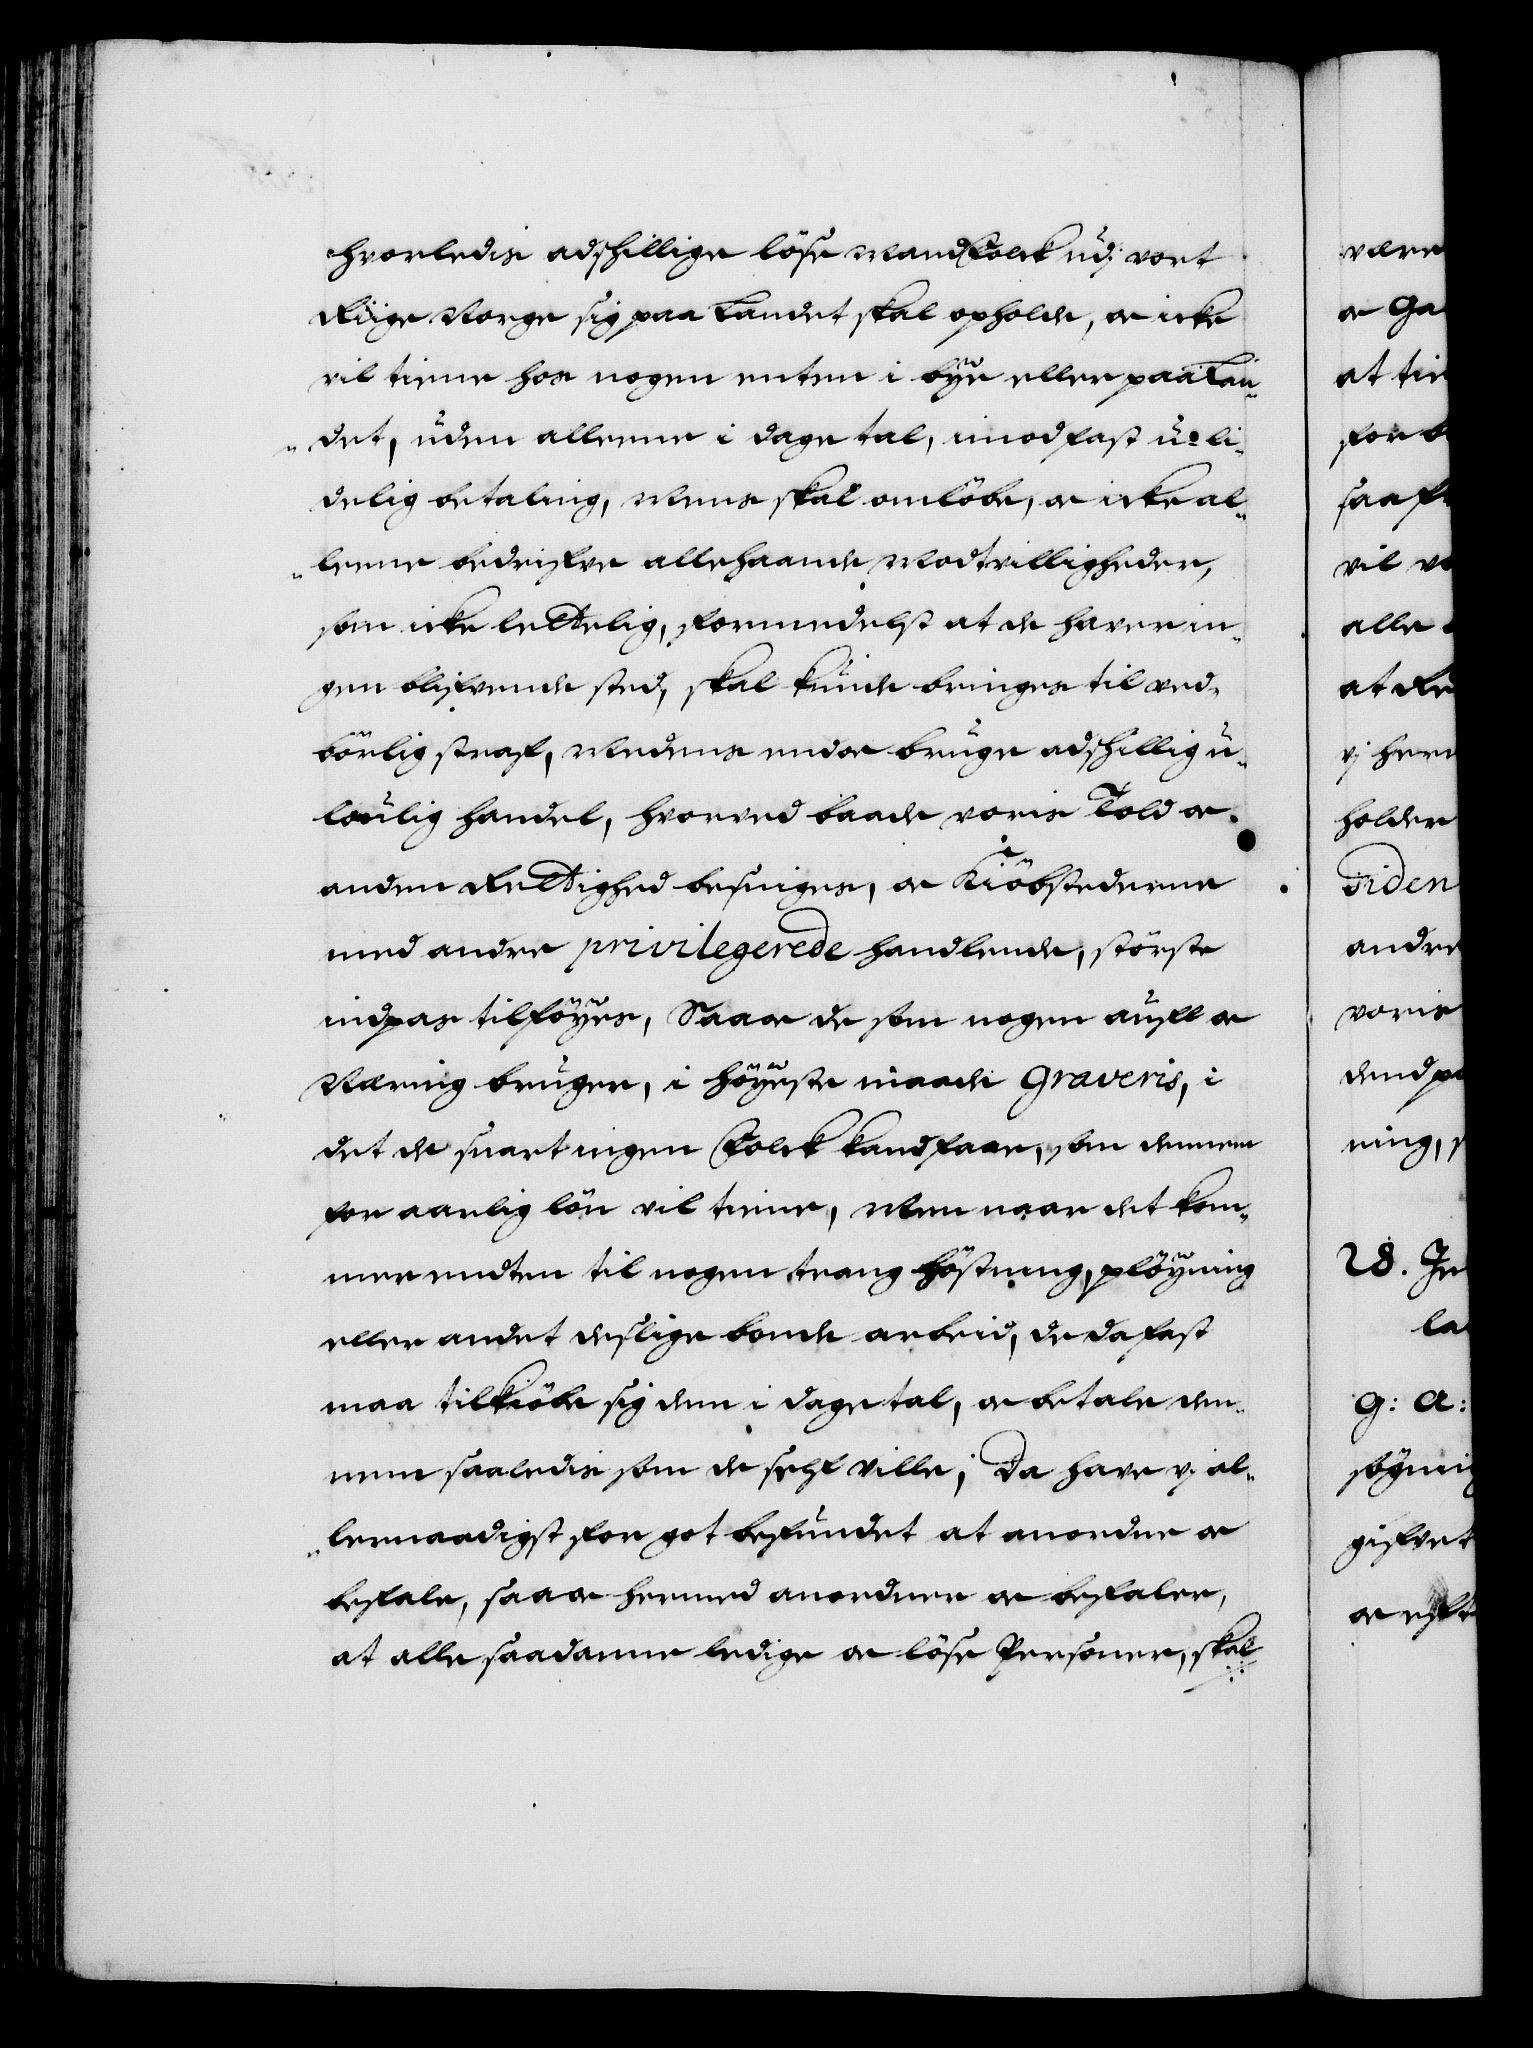 hvorledis adskillige löse Mandfolck udj vort
Riige Norge sig paa Landet skal opholde, oc icke
vil tiene hos nogen enten i bÿe eller paa Lan-
det, uden alleene i dage tal, imod fast u-li-
delig betaling, Mens skal omlöbe, oc icke al-
leene bedrifve allehaande Modtvilligheder,
som icke lettelig, formedelst at de haver in-
gen blifvende sted, skal kunde bringes til ved-
börlig straf, Medens endoc bruge adskillig u-
loulig handel, hvorved baade voris Told oc
anden Rettighed besviges, oc Kiöbstederne
med andre privilegerede handlende, störste
indpas tilföÿes, Saa oc de som nogen aufl oc
Næring bruger, i höÿeste maade graveris, i
det de snart ingen Folck kand faae, som dennem
for aarlig lön vil tiene, Men naar det kom-
mer endten til nogen trang höstning, plöÿning
eller andet deslige bonde arbeid, de da fast
maa tilkiöbe sig dem i dage tal, oc betale den-
nem saaledis som de self ville; Da have vj al-
lernaadigst for got befundet at anordne oc
befale, saa oc hermed anordner oc befaler,
at alle saadanne ledige oc löse Personer, skal
være
oc Ga
at tie
for b
saa f
vil v
alle
at Re
vj her
holder
Tiden
andre
voris
dend p
ning, s
28. Je
la
G: A:
söÿning
gifvet
oc eft